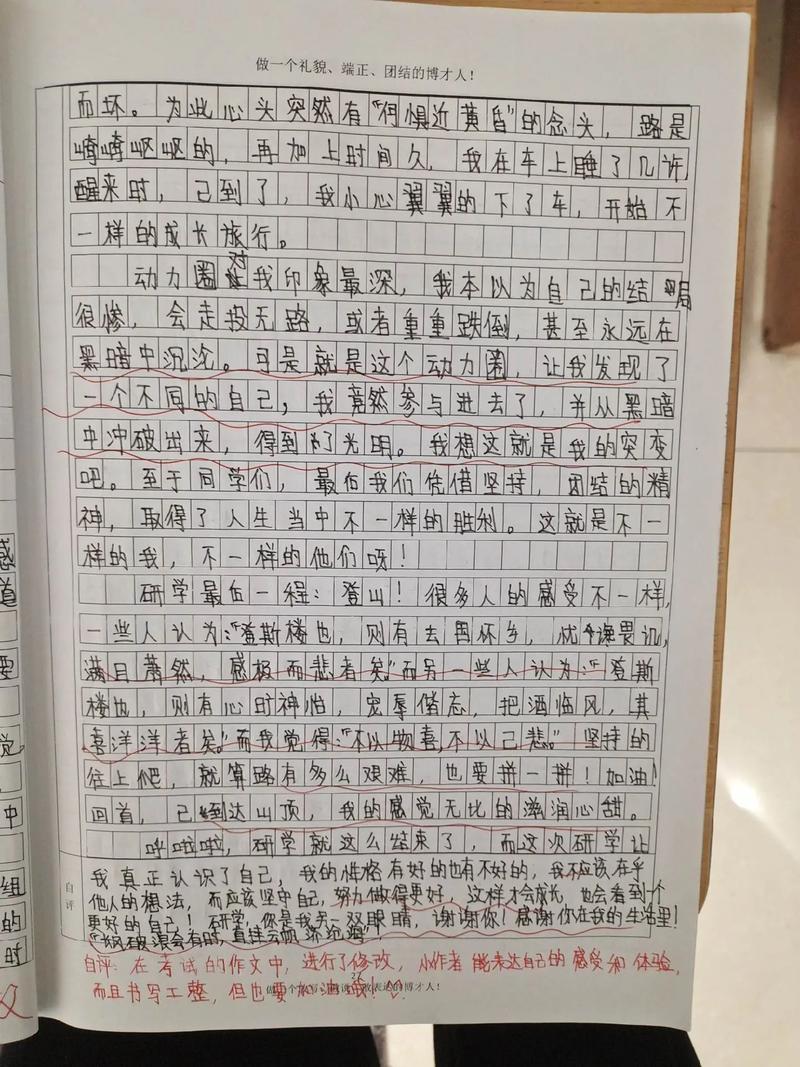 做一个礼貌、端正、团结的博才人！
而坏。为此心头突然有“何惧近黄昏”的念头，路是
崎崎岖岖的，再加上时间久，我在车上睡了几许
醒来时，已到了，我小心翼翼的下了车，开始不
一样的成长旅行。
动力圈对我印象最深，我本以为自己的结局
很惨，会走投无路，或者重重跌倒，甚至永远在
黑暗中沉沦。可是就是这个动力圈，让我发现了
一个不同的自己，我竟然参与进去了，并从黑暗
中冲破出来，得到了光明。我想这就是我的突变
吧。至于同学们，最后我们凭借坚持，团结的精
神，取得了人生当中不一样的胜利。这就是不一
样的我，不一样的他们呀！
研学最后一程：登山！很多人的感受不一样，
一些人认为：“登斯楼也，则有去国怀乡，忧谗畏讥，
满目萧然，感极而悲者矣。”而另一些人认为：“登斯
楼也，则有心旷神怡，宠辱偕忘，把酒临风，其
喜洋洋者矣。”而我觉得：“不以物喜，不以己悲。”坚持的
往上爬，就算路有多么艰难，也要拼一拼！加油！
回首，已到达山顶，我的感觉无比的滋润心甜。
呼啦啦，研学就这么结束了，而这次研学让
自评
我真正认识了自己，我的性格有好的也有不好的，我不应该在乎
他人的想法，而应该坚守自己，努力做得更好，这样才会成长，也会看到一个
更好的自己！研学，你是我另一双眼睛，谢谢你！感谢你在我的生活里！
“长风破浪会有时，直挂云帆济沧海”！
自评：在考试的作文中，进行了修改，小作者能表达自己的感受和体验，
而且书写工整，但也要加油哦！
感
道
要
觉
中
组
的
时